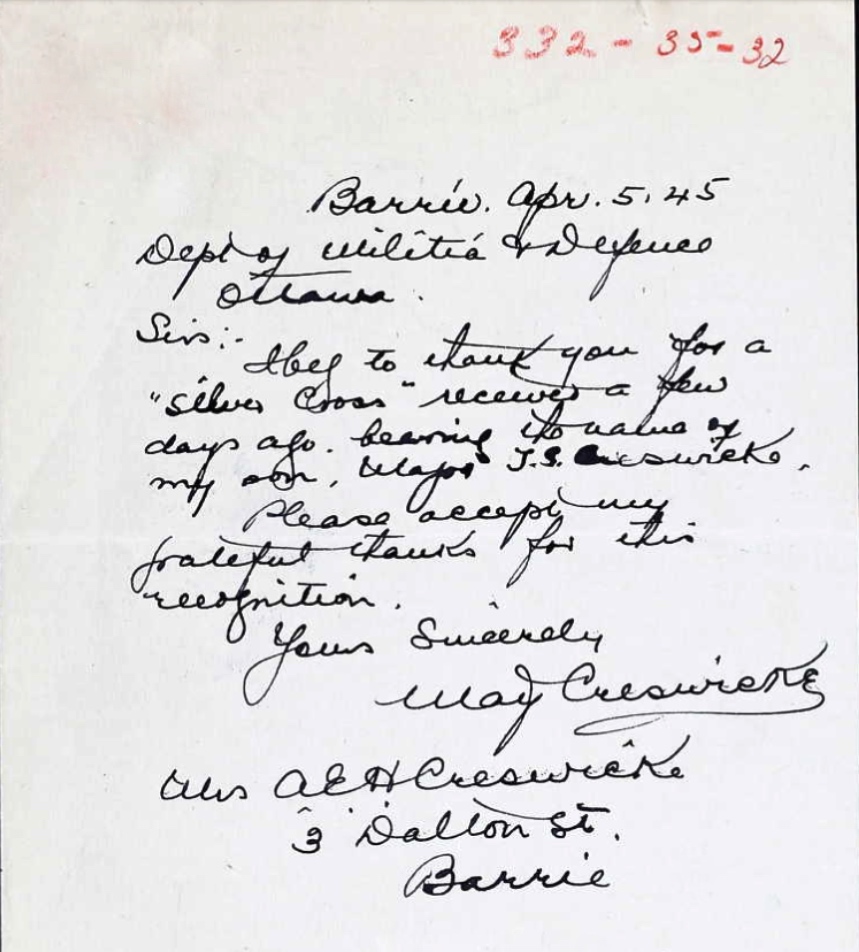 332-35-32
Barrie. Apr. 5. 45
Dept of Militia & Defence
Ottawa.
Sirs:-
I beg to thank you for a
"Silver Cross" received a few
days ago. bearing the name of
my son, Major J.S. Creswicke.
Please accept my
grateful thanks for this
recognition.
Yours Sincerely
May Creswicke
Mrs A E H Creswicke
3 Dalton St.
Barrie